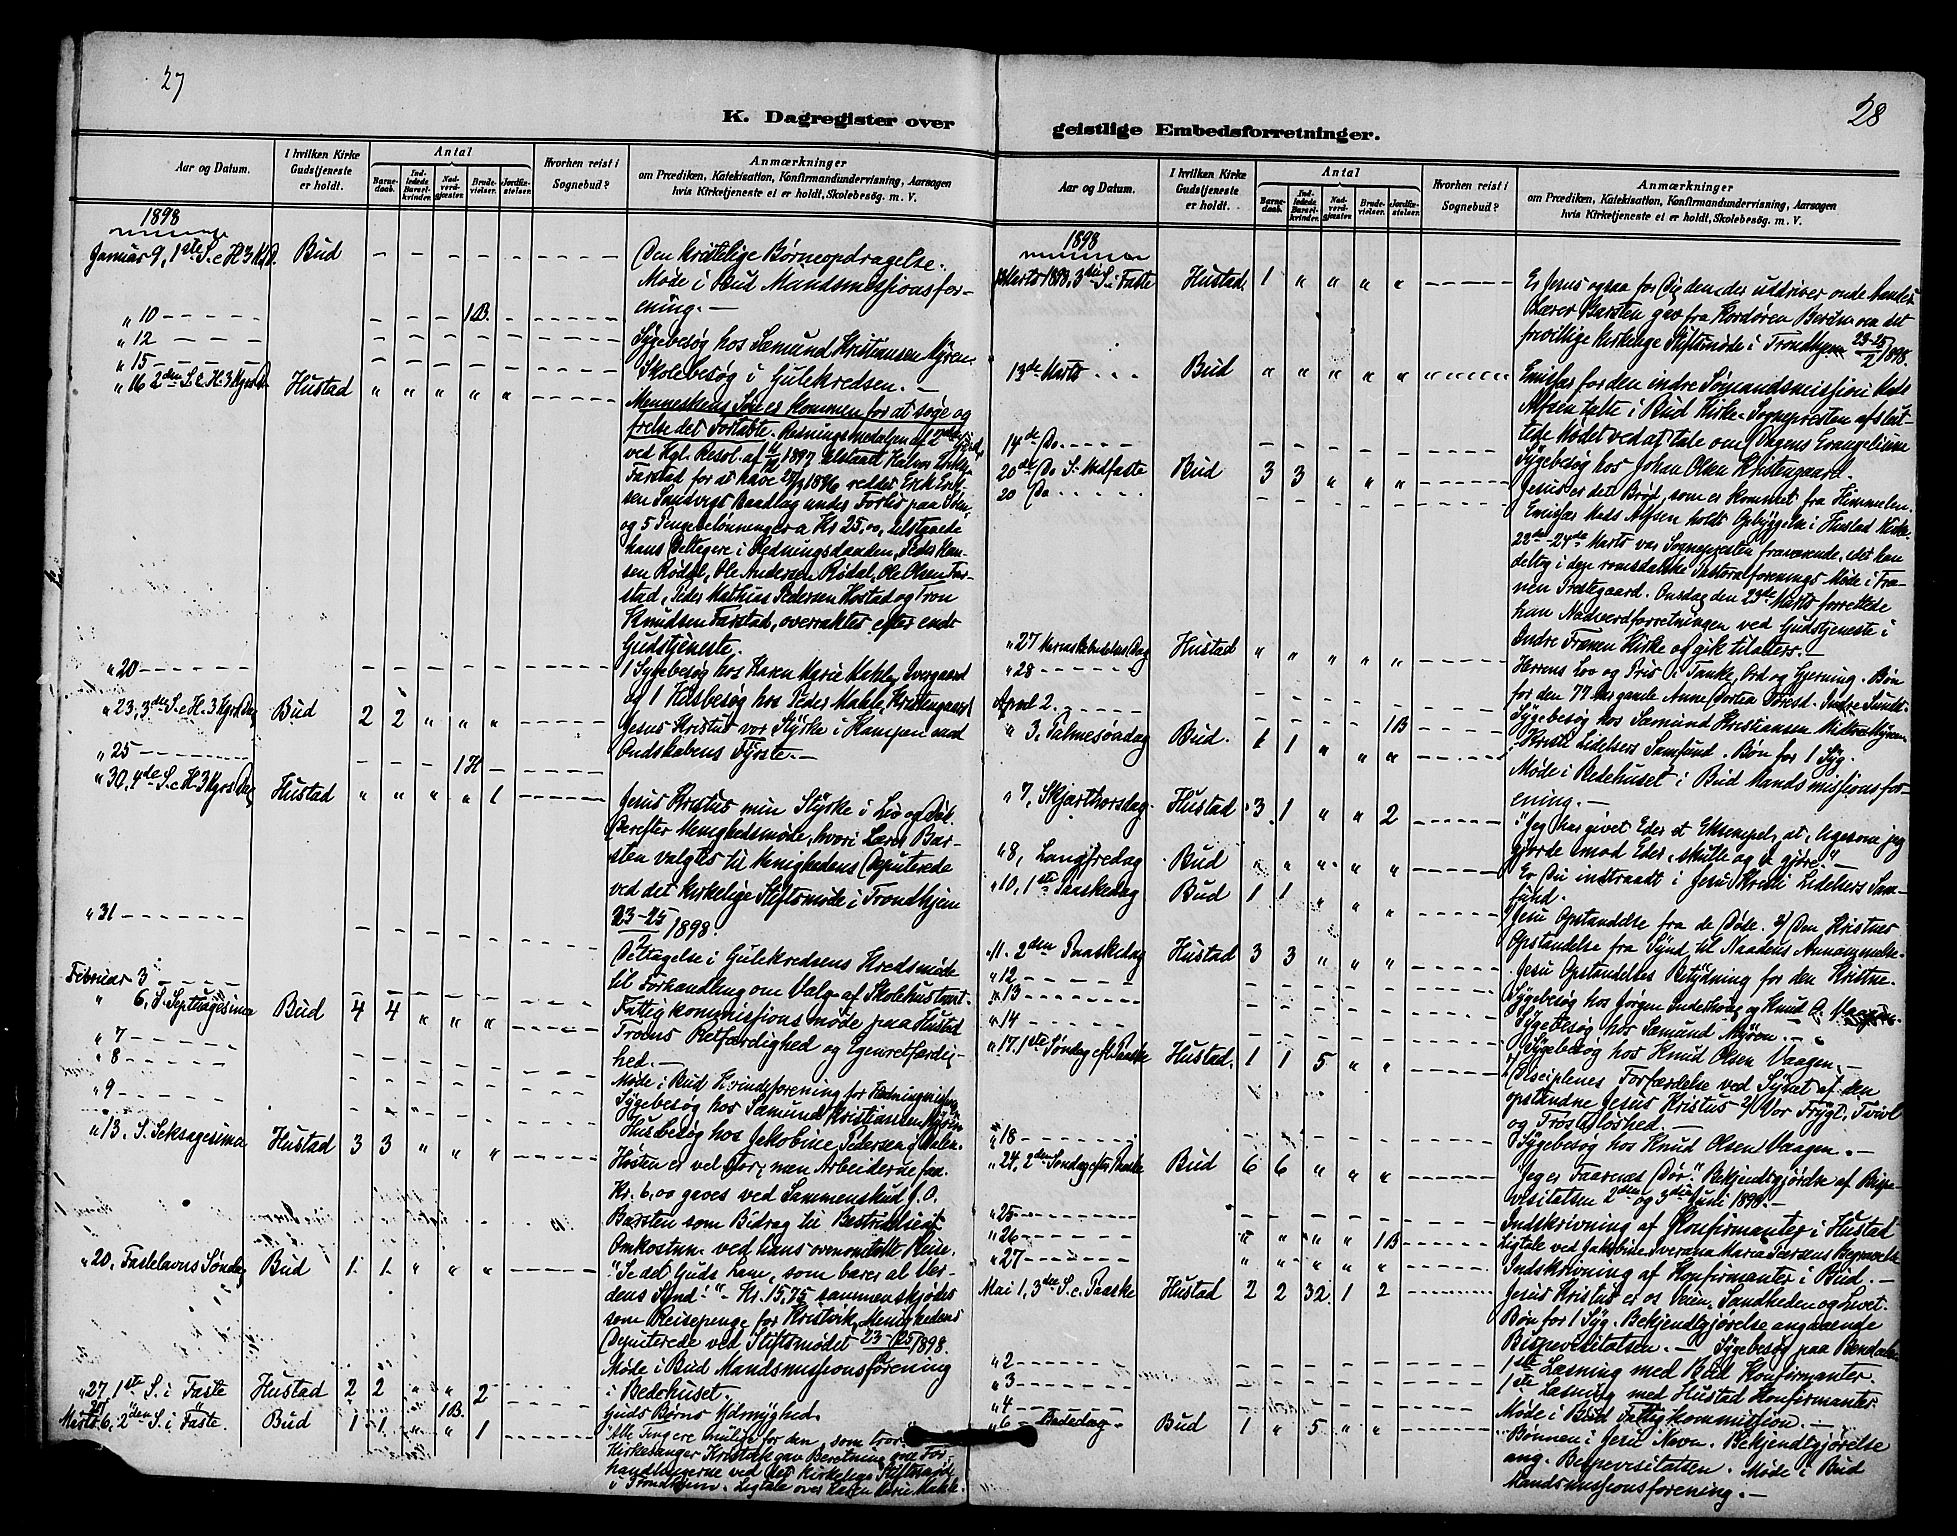 27
K. Dagregister over
Aar og Datum.
I hvilken Kirke Gudstjeneste er holdt.
Antal
Barnedaab.
Indledede Barselkvinder.
Nadverdgjæster.
Brudevielser.
Jordfæstelser.
Hvorhen reist i Sognebud?
Anmærkninger
om Prædiken, Katekisation, Konfirmandundervisning, Aarsagen
hvis Kirketjeneste ei er holdt, Skolebesøg. m. V.
1898
Januar 9, 1ste S. e H 3 K. D. Bud
Den kristelige Børneopdragelse.
Møde i Bud Mandsmissionsfor-
ening.-
" 10 1B.
" 12 Sygebesøg hos Sæmund Kristiansen Myren.
" 15 Skolebesøg i Gulekredsen.-
" 16 2den S. e. H. 3 Kgrs D. Hustad " " " " "
Menneskens Søn er kommen for at søge og
frelse det Fortabte. Redningsmedaljen af 2den
ved Kgl. Resol. af 1897 tilstaaet
Farstad for at have 1896 reddet Erik Erik-
sen Sandvigs Baadlag under Forlis paa
og 5 Pengebelønninger a Kr 25,00, tilstaaede
hans Deltagere i Redningsdaaden, Peder Han-
sen Rødal, Ole Andersen Rødal, Ole Olsen Far-
stad, Peder Mathias Pedersen Hostad og Tron
Knudsen Farstad, overraktes efter endt
Gudstjeneste.
" 20 1 Sygebesøg hos Karen Marie Makle,
og 1 Husbesøg hos Peder Makle, Kristengaard.
" 23, 3die S. e H. 3 Kgrs Dag Bud 2 2 " " "
Jesus Kristus vor Styrke i Kampen mod
Ondskabens Fyrste.-
" 25 1H
" 30, 4de S. e H. 3 Kgrs Dag Hustad " " " " 1
Jesus Kristus min Styrke i Liv og Død.
Derefter Menighedsmøde, hvori Lærer Bar-
sten valgtes til Menighedens Deputerede
ved det kirkelige Stiftsmøde i Trondhjem
23-25/2 1898.
" 31 Deltagelse i Gulekredsens Kredsmøde
til Forhandling om Valg af Skolehustomt.
Februar 3 Fattigkommissionsmøde paa Hustad
" 6, S. Septuagesima Bud 4 4 " " "
Troens Retfærdighed og Egenretfærdig-
hed.-
" 7 Møde i Bud Kvindeforening for Hedningmission
" 8 Sygebesøg hos Sæmund Kristiansen Myren
" 9 Husbesøg hos Jakobine Pedersen
" 13, S. Seksagesima Hustad 3 3 " " "
Høsten er vel stor, men Arbeiderne faa.
Kr. 6,00 gaves ved Sammenskud f. O.
Barsten som Bidrag til Bestridelse af
Omkostn. ved hans ovenomtalte Reise.
" 20, Fastelavns Søndag Bud 1 1 " " "
"Se det Guds Lam, som bærer al Ver-
dens Synd!"- Kr. 15,75 sammenskjødes
som Reisepenge for Kristvik, Menighedens
Deputerede ved Stiftsmødet 23-25/2 1898.
Møde i Bud Mandsmissionsforening
i Bedehuset.-
" 27, 1ste S. i Faste Hustad 2 2 " " 2
Guds Børns Ydmyghed.
1B.
Marts 6, 2den S. i Faste. Bud 1 1 " " 1
"Alle Ting ere mulige for den, som tror."
Kirkesanger Kristvik gav Beretning over For-
handlingerne ved det kirkelige Stiftsmøde
i Trondhjem.- Ligtale over Karen Marie Makle.
28
geistlige Embedsforretninger.
Aar og Datum.
I hvilken Kirke Gudstjeneste er holdt.
Antal
Barnedaab.
Indledede Barselkvinder.
Nadverdgjæster.
Brudevielser.
Jordfæstelser.
Hvorhen reist i Sognebud?
Anmærkninger
om Prædiken, Katekisation, Konfirmandundervisning, Aarsagen
hvis Kirketjeneste ei er holdt, Skolebesøg. m. V.
1898
Marts 1898, 3die S. i Faste Hustad 1 " " " "
Er Jesus ogsaa for Dig den, der uddriver onde Aander.
Lærer Barsten gav fra Kordøren Beretn. om det
frivillige kirkelige Stiftsmøde i Trondhjem 23-25/2 1898.
13de Marts Bud " " " " "
Emissær for den indre Sømandsmission Mads
Alfsen talte i Bud Kirke. Sognepresten afslut-
tede Mødet ved at tale om Dagens Evangelium
14de Do Sygebesøg hos Johan Olsen Kristengaard.
20de Do S. Midfaste Bud 3 3 " " "
Jesus er det Brød, som er kommet fra Himmelen.
20 Do Emissær Mads Alfsen holdt Opbyggelse i Hustad Kirke.
22de-24de Marts var Sognepresten fraværende, idet han
deltog i den romsdalske Pastoralforenings Møde i Fræ-
nen Præstegaard. Onsdag den 23de Marts forrettede
han Nadverdforretningen ved Gudstjeneste i
Indre Frænen Kirke og gik til alters.-
" 27 Marias Bebudelses Dag Hustad " " " " "
Herrens Lov og Pris i Tanke, Ord og Gjerning. Bøn
for den 77 Aar gamle Anne Dortea
" 28 Sygebesøg hos Sæmund Kristiansen Myren
April 2. 1B
" 3, Palmesøndag Bud. 1 1 " " "
Kristi Lidelsers Samfund. Bøn for 1 Syg.
Møde i Bedehuset i Bud Mandsmissionsfor-
ening.-
" 7, Skjærthorsdag. Hustad 3 1 " " 2
"Jeg har givet Eder et Eksempel, at, ligesom jeg
gjorde imod Eder, skulle og I gjøre."-
" 8, Langfredag Bud " " " " "
Er Du indviet i Jesu Kristi Lidelsers Sam-
fund.
" 10, 1ste Paaskedag Bud 1 1 " " "
Jesu Opstandelse fra de Døde. 2/ Den Kristnes
Opstandelse fra Synd til Naadens Annammelse.
" 11. 2den Paaskedag Hustad 3 3 " " "
Jesu Opstandelses Betydning for den Kristne.
" 12 Sygebesøg hos Jørgen og Knud O. Vaagen.
" 13 Sygebesøg hos Sæmund Myren.-
" 14 Sygebesøg hos Knud Olsen Vaagen.-
" 17. 1ste Søndag eft. Paaske Hustad. 1 1 5 " "
1/ Disciplenes Forfærdelse ved Synet af den
opstandne Jesus Kristus 2/ Vor Frygt, Tvivl
og Trøstesløshed.-
" 18 Sygebesøg hos Knud Olsen Vaagen.-
" 24, 2den Søndag efter Paaske Bud 6 6 " " "
"Jeg er Faarenes Dør." Bekjendtgjørelse af Bispe-
visitatsen 2den og 3die Juli 1898.-
" 25 Indskrivning af Konfirmanter i Hustad
" 26 " " " " 1B Ligtale ved Jakobine Sverana Maria Begravelse
" 27 " " " " " Indskrivning af Konfirmanter i Bud.-
Mai 1, 3die S. e. Paaske Hustad 2 2 32 1 2
Jesus Kristus er os Veien, Sandheden og Livet.
Bøn for 1 Syg. Bekjendtgjørelse angaaende
Bispevisitatsen.- Sygebesøg paa
" 2 1ste Læsning med Bud Konfirmanter.
" 3 1ste Læsning med Hustad Konfirmanter
" 4 Møde i Bud Fattigkommission.-
" 6 Bededag. Bud 1 " 5 " "
Bønnen i Jesu Navn. Bekjendtgjørelse
ang. Bispevisitatsen. Møde i Bud
Mandsmissionsforening.-